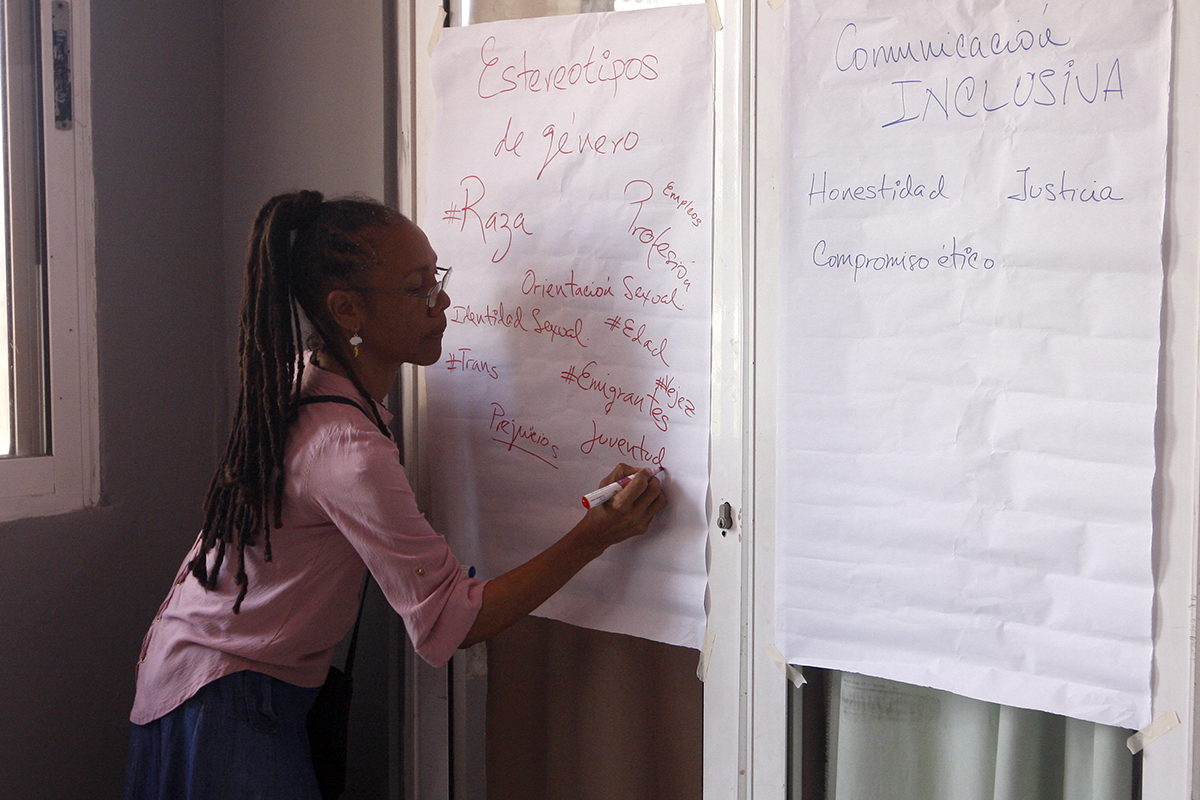 Estereotipos
de género
#Raza
Empleos
Profesión
Orientación Sexual
Identidad Sexual
#Edad
#Trans
#Emigrantes
#Vejez
Prejuicios
Juventud
Comunicación
INCLUSIVA
Honestidad Justicia
Compromiso ético